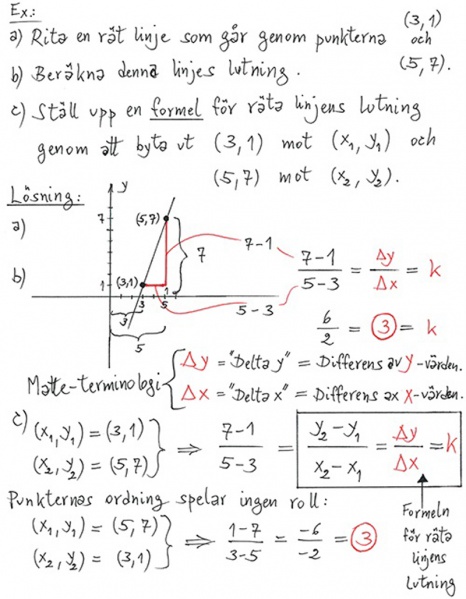 Ex:
a) Rita en rät linje som går genom punkterna (3,1) och (5,7).
b) Beräkna denna linjes lutning.
c) Ställ upp en formel för räta linjens lutning
genom att byta ut (3,1) mot (x₁, y₁) och
(5,7) mot (x₂, y₂).
Lösning:
a)
y
7
(5,7)
7
7-1
1
(3,1)
3
5
1
3
5
5-3
b)
7-1 / 5-3 = Δy / Δx = k
6/2 = 3 = k
Matte-terminologi { Δy = "Delta y" = Differens av y-värden.
Δx = "Delta x" = Differens ax x-värden.
c) (x₁, y₁) = (3,1)
(x₂, y₂) = (5,7) } ⇒ 7-1 / 5-3 = y₂-y₁ / x₂-x₁ = Δy / Δx = k
Punkternas ordning spelar ingen roll:
(x₁, y₁) = (5,7)
(x₂, y₂) = (3,1) } ⇒ 1-7 / 3-5 = -6 / -2 = 3
Formeln
för räta
linjens
lutning